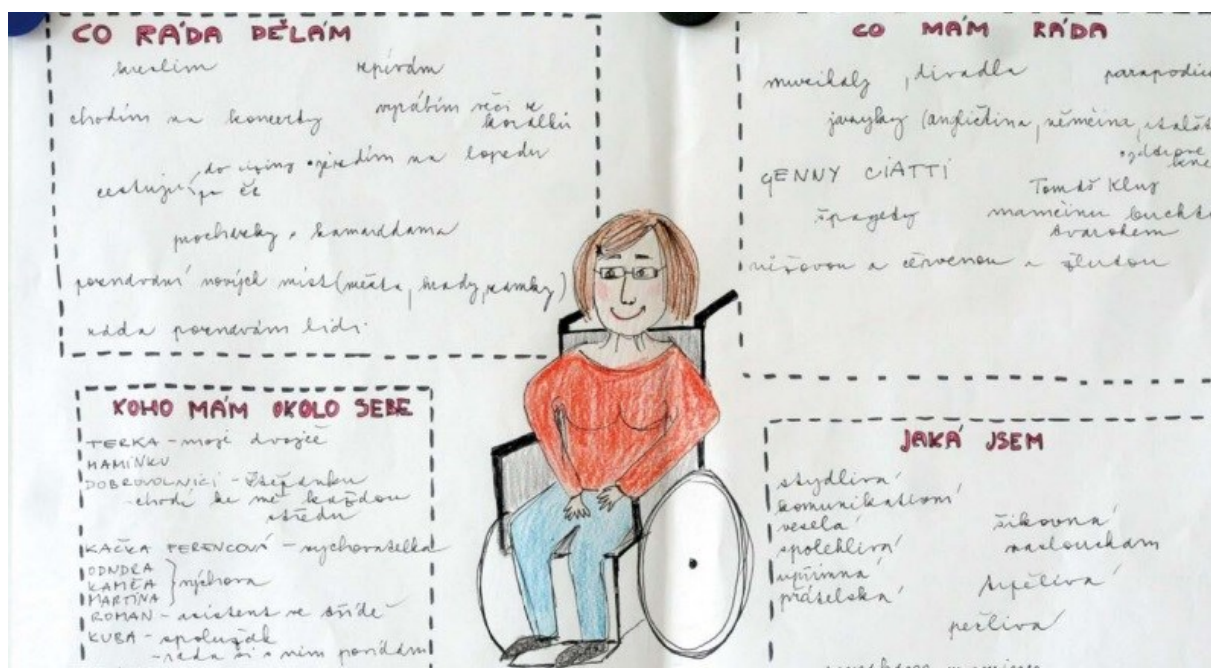 CO RÁDA DĚLÁM
kreslím zpívám
chodím na koncerty vyrábím věci z
korálků
cestuji do ciziny jezdím na
po čr
procházky s kamarádama
poznávání nových míst (města, hrady, zámky)
ráda poznávám lidi
CO MÁM RÁDA
muzikály, divadla
jazyky (angličtina, němčina,
GENNY CIATTI Tomáš Klus
špagety maminčinu
tvarohem
růžovou a červenou a žlutou
KOHO MÁM OKOLO SEBE
TERKA - moje dvojče
MAMINKU
DOBROVOLNICI - Štěpánku
- chodí ke mě každou
středu
KAČKA FERENCOVÁ - vychovatelka
ODNDRA
KAMČA
MARTINA } výchova
ROMAN - asistent ve třídě
KUBA - spolužák
- ráda si s ním povídám
JAKÁ JSEM
stydlivá
komunikativní
veselá šikovná
spolehlivá naslouchám
upřímná
přátelská trpělivá
pečlivá